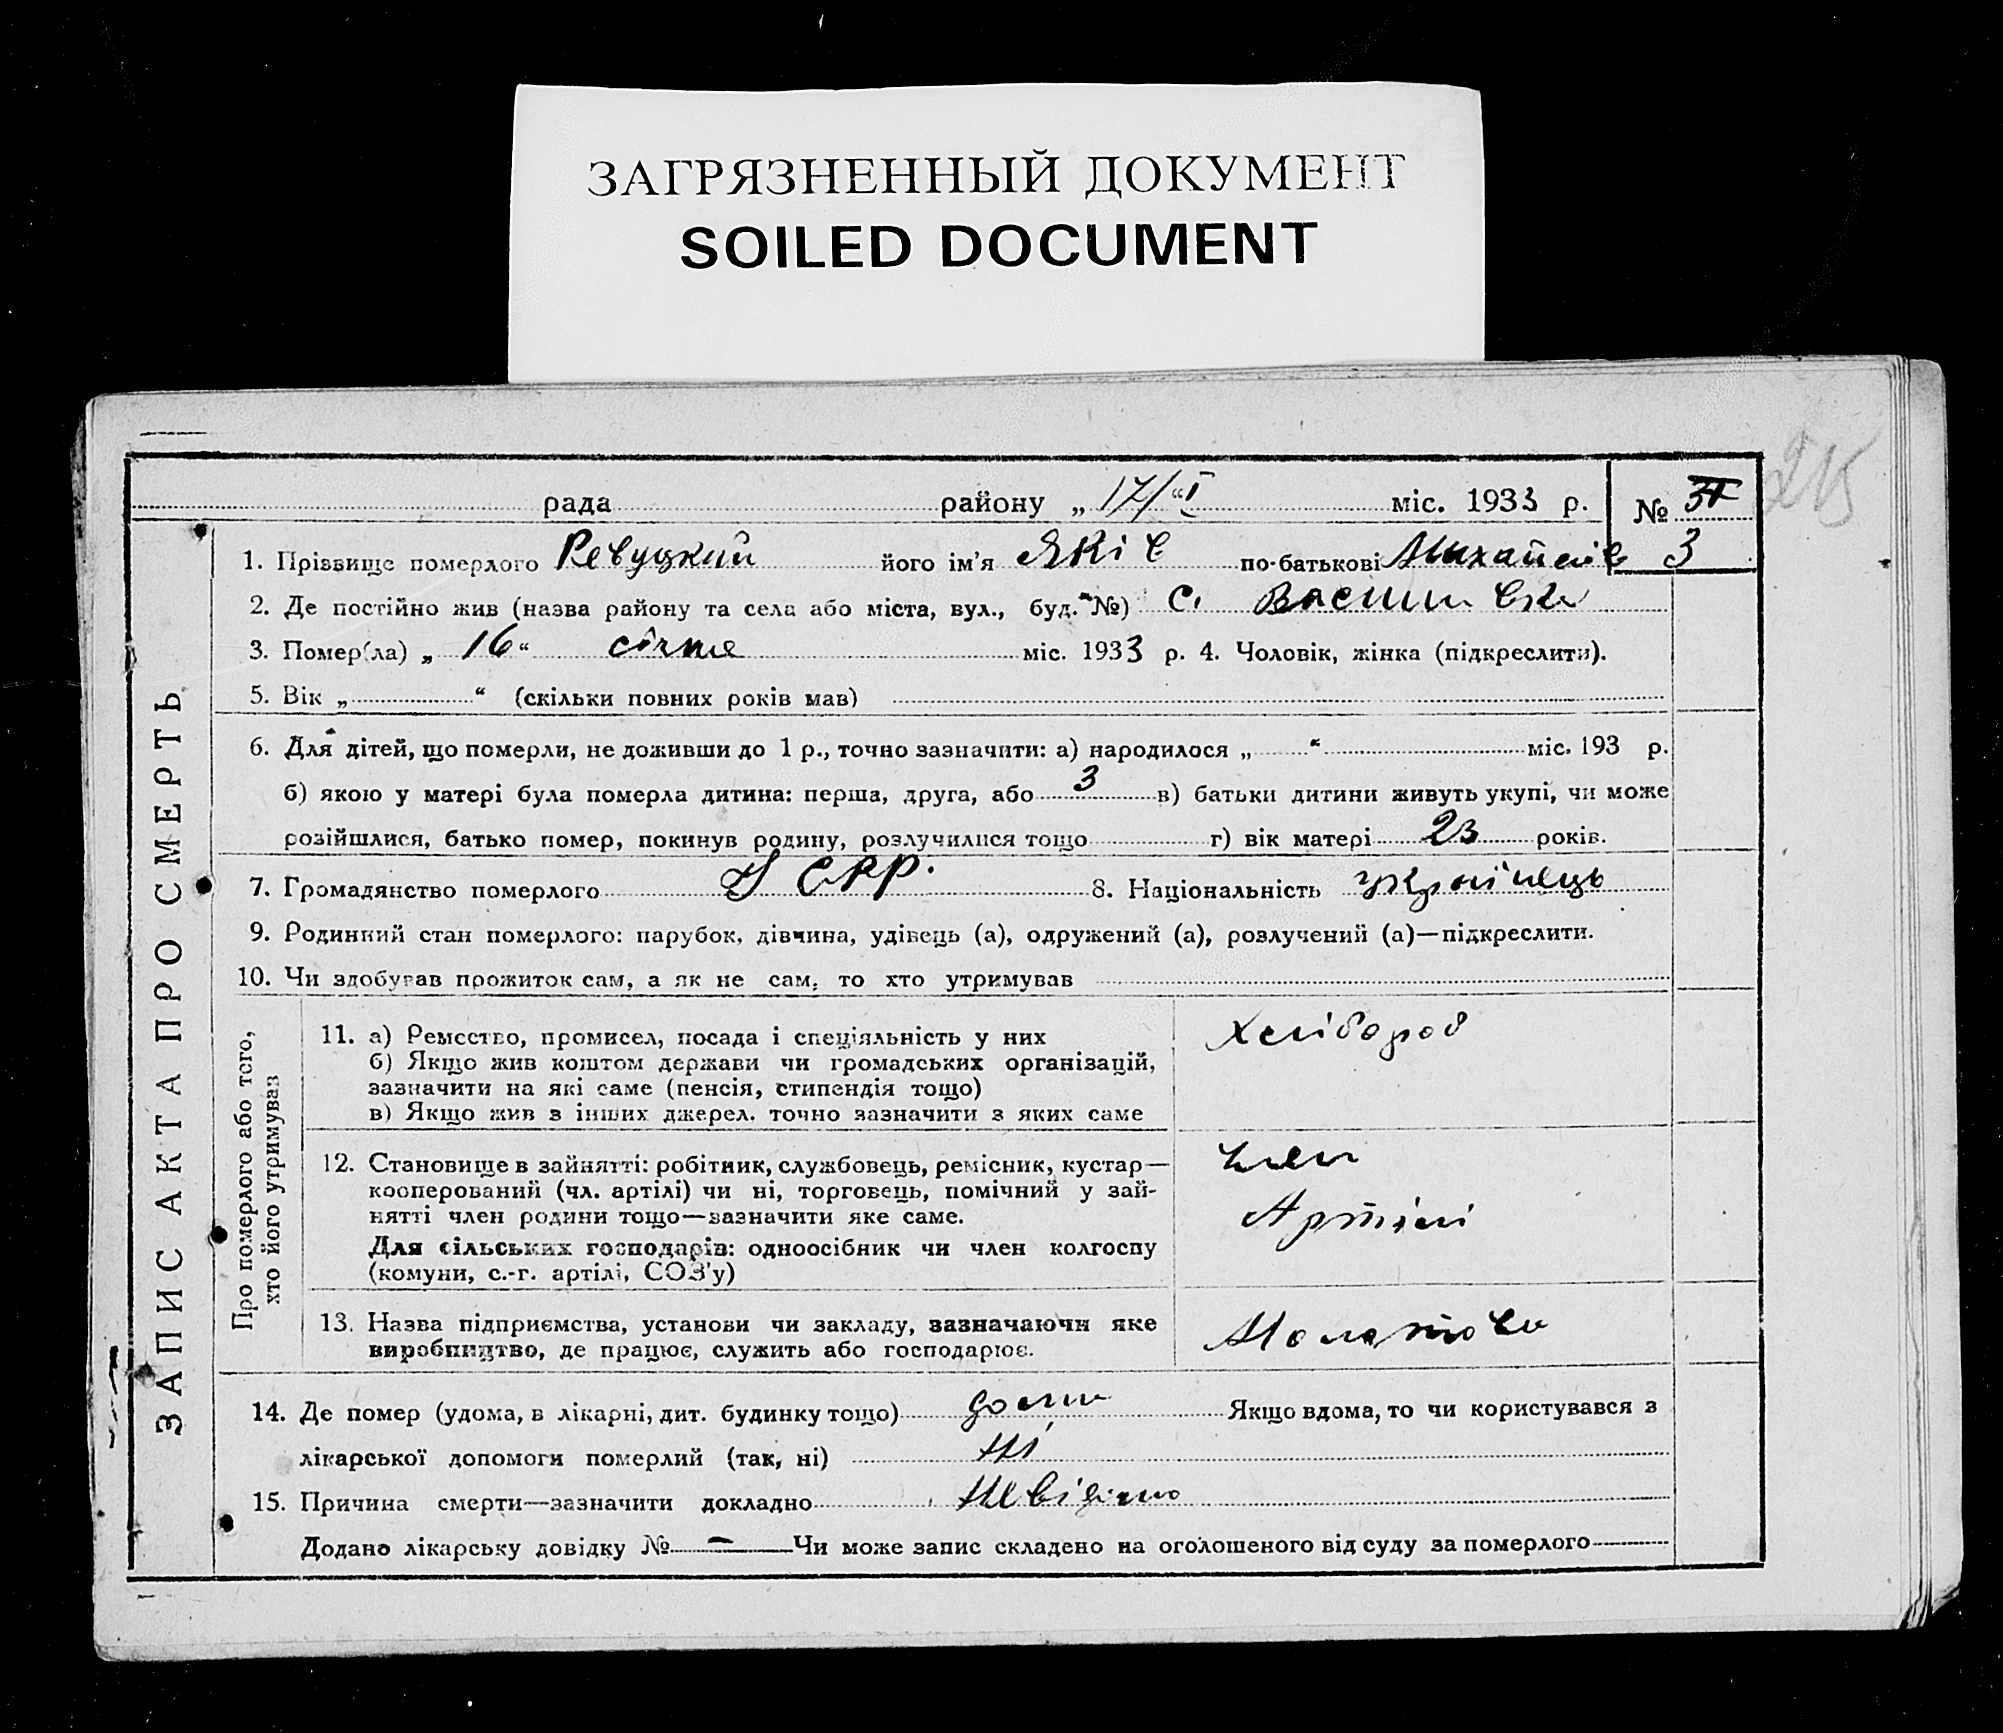 ЗАГРЯЗНЕННЫЙ ДОКУМЕНТ
SOILED DOCUMENT
215
рада району „ 17/"I міс. 1933 р. №
3
1. Прізвище померлого Ревуцкий його ім'я Якiв по-батькові Михайлів
2. Де постійно жив (назва району та села або міста, вул., буд. №) с.
3. Помер(ла) „ 16 " січне міс. 1933 р. 4. Чоловік, жінка (підкреслити).
5. Вік „ " (скільки повних років мав)
6. Для дітей, що померли, не доживши до 1 р., точно зазначити: а) народилося „ " міс. 193 р.
б) якою у матері була померла дитина: перша, друга, або 3 в) батьки дитини живуть укупі, чи може
розійшлися, батько помер, покинув родину, розлучилися тощо г) вік матері 23 років.
7. Громадянство померлого УСРР. 8. Національність українець
9. Родинний стан померлого: парубок, дівчина, удівець (а), одружений (а), розлучений (а)—підкреслити.
10. Чи здобував прожиток сам, а як не сам, то хто утримував
ЗАПИС АКТА ПРО СМЕРТЬ
Про померлого або того,
хто його утримував
11. а) Ремество, промисел, посада і спеціяльність у них
б) Якщо жив коштом держави чи громадських організацій,
зазначити на які саме (пенсія, стипендія тощо)
в) Якщо жив з інших джерел, точно зазначити з яких саме
хлібороб
12. Становище в зайнятті: робітник, службовець, ремісник, кустар—
кооперований (чл. артілі) чи ні, торговець, помічний у зай-
нятті член родини тощо—зазначити яке саме.
Для сільських господарів: одноосібник чи член колгоспу
(комуни, с.-г. артілі, СОЗ'у)
член
Артілі
13. Назва підприємства, установи чи закладу, зазначаючи яке
виробництво, де працює, служить або господарює.
14. Де помер (удома, в лікарні, дит. будинку тощо) дома Якщо вдома, то чи користувався з
лікарської допомоги померлий (так, ні) ні
15. Причина смерти—зазначити докладно Невідомо
Додано лікарську довідку № — Чи може запис складено на оголошеного від суду за померлого